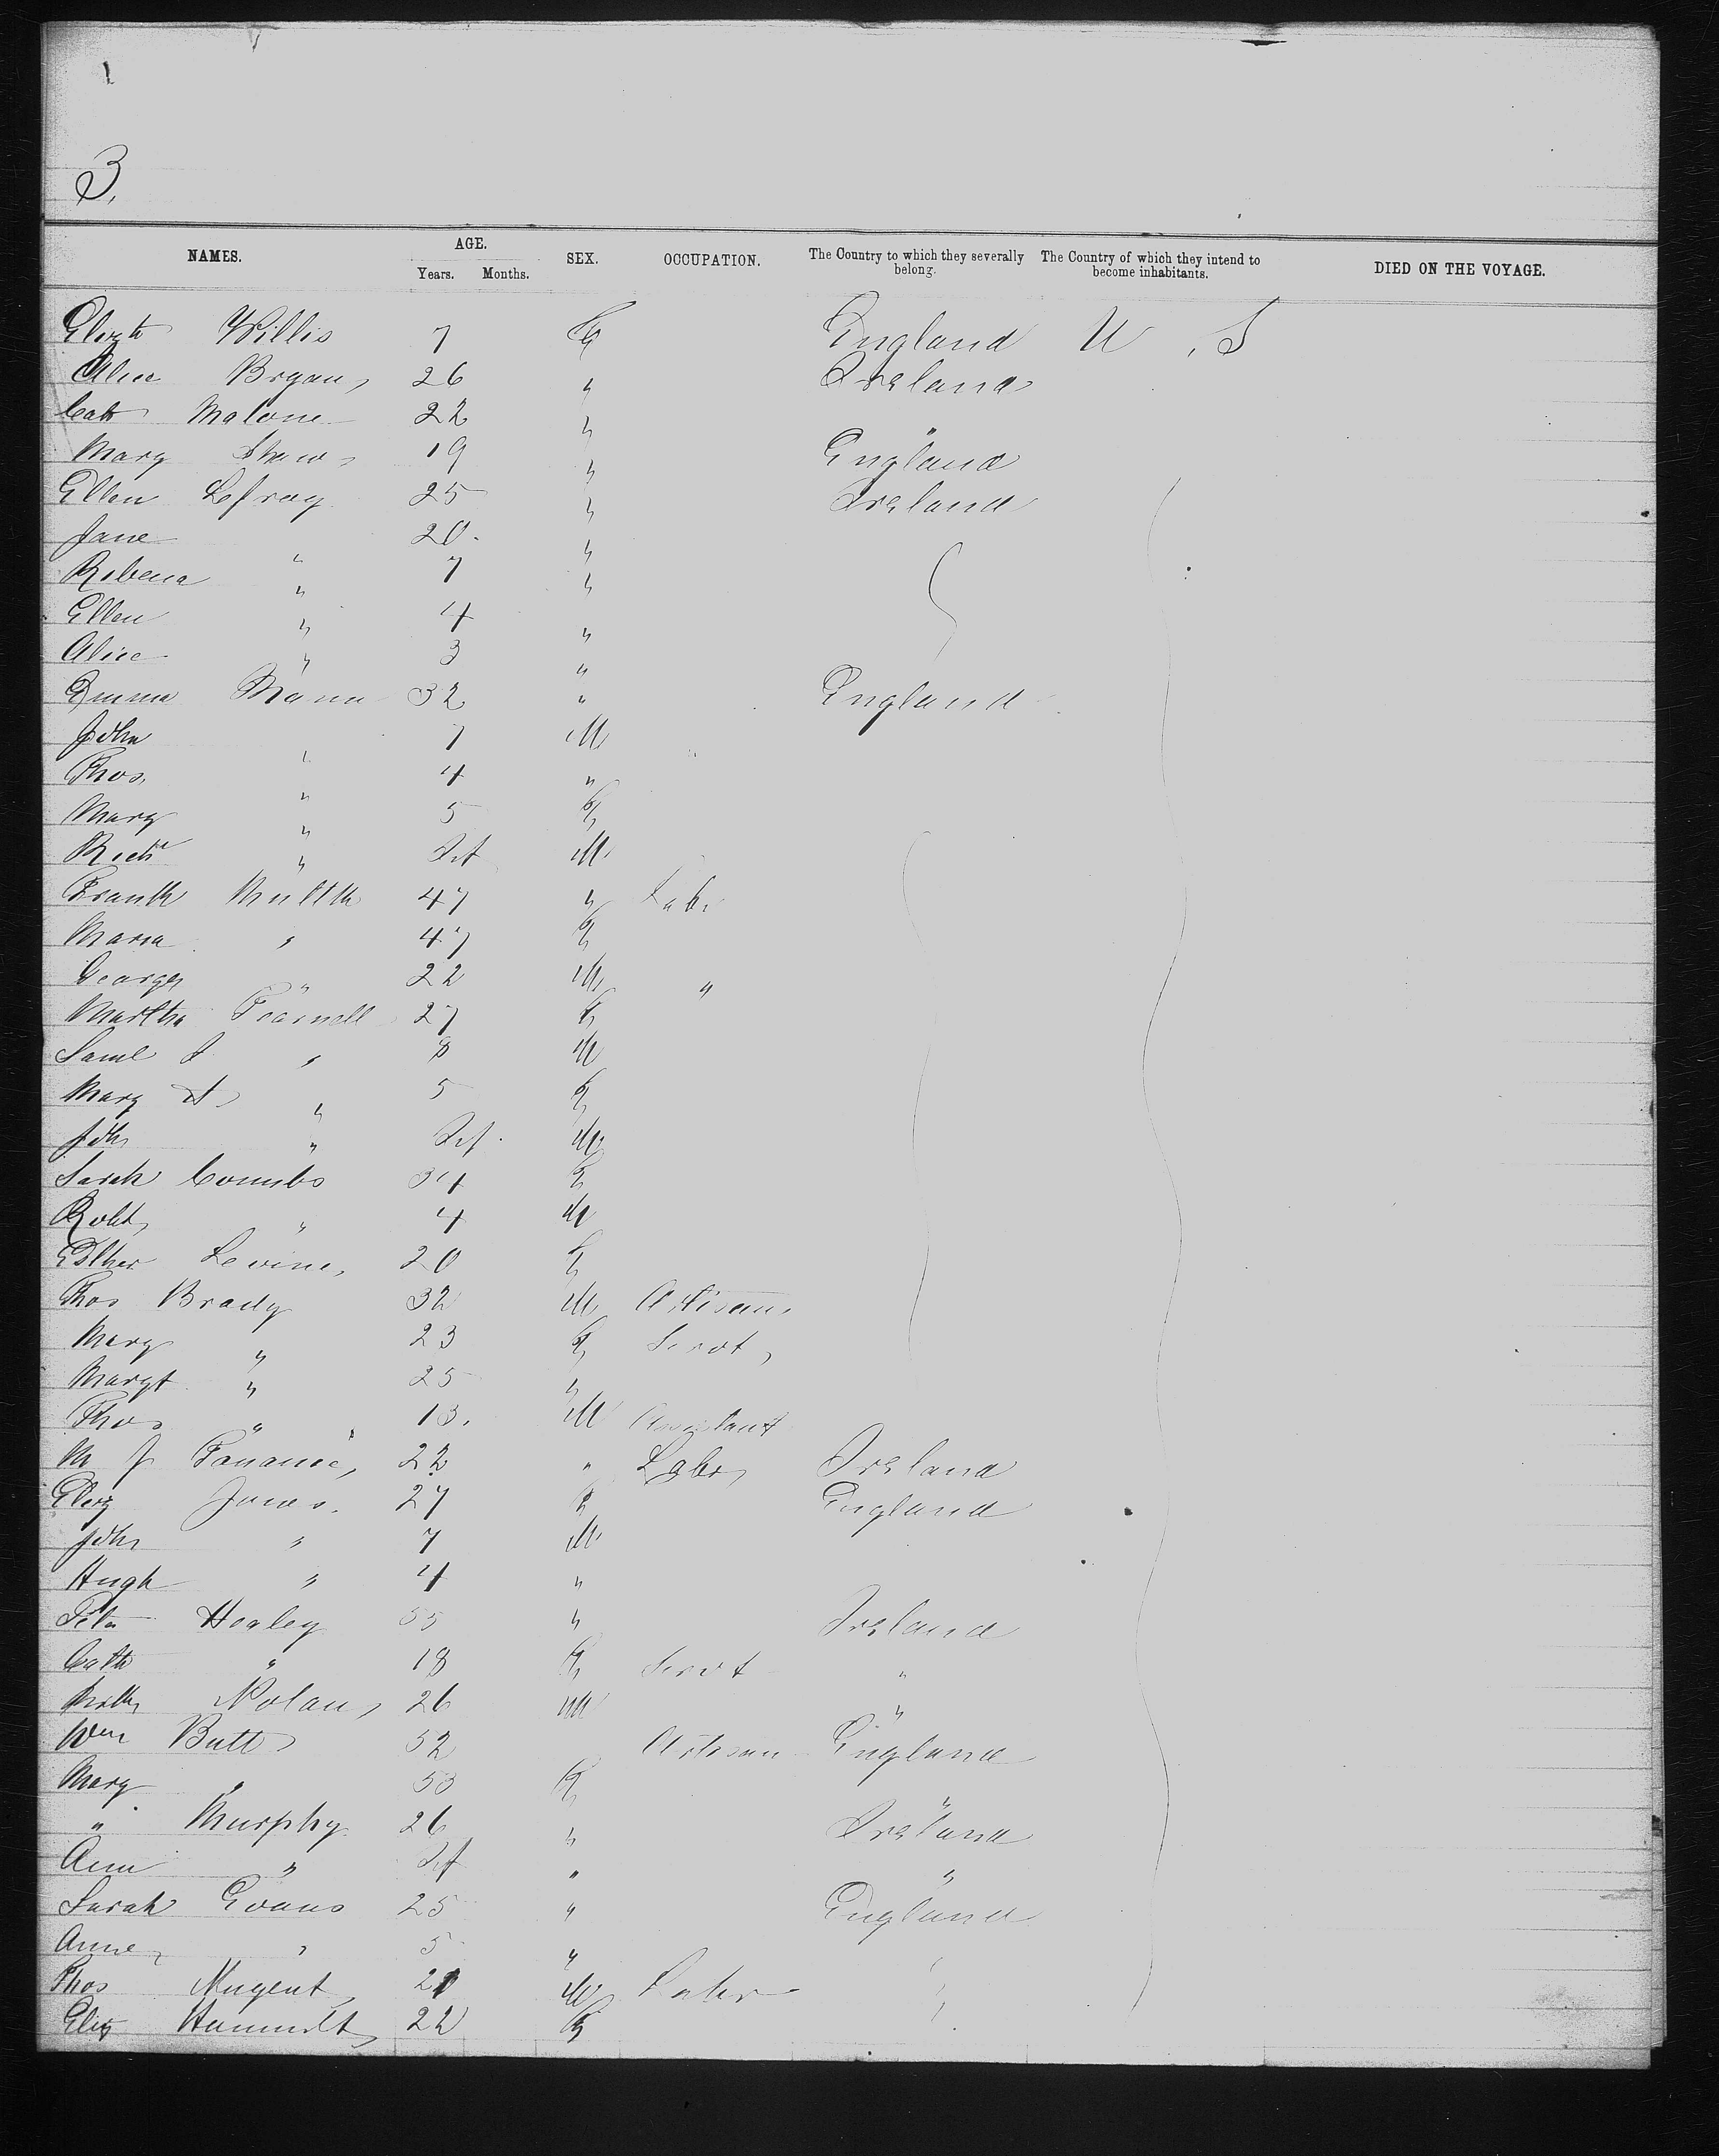 3.
NAMES. AGE. Years. Months. SEX. OCCUPATION. The Country to which they severally belong. The Country of which they intend to become inhabitants. DIED ON THE VOYAGE.
Elizth Willis 7 F England U . S
Alice Bryan, 26 " Ireland
Cath Malone 22 " "
Mary Shaw 19 " England
Ellen Lefroy 25 " Ireland
Jane " 20. "
Rebecca " 7 "
Ellen " 4 "
Alice " 3 "
Emma Mann 32 " England
John " 7 M
Thos. " 4 "
Mary " 5 F
Richd " Inf M
Frank 47 " Labr
Maria " 47 F
George " 22 M "
Martha Fearnell 27 F
Saml J " 8 M
Mary A " 5 F
Jdh " Inf. M
Sarah Coombs 34 F
Robt, " 4 M
Esther Levine, 20 F
Thos Brady 32 M Artisan,
Mary " 23 F Servt,
Margt " 25 "
Thos " 13. M Assistant
M J 22 " Labr, Ireland
Eliz Jones. 27 F England
Jdh " 7 M
Hugh " 4 "
Peter Healey 55 " Ireland
Cath " 18 F Servt "
Nolan, 26 M "
Wm Butt 52 Artisan England
Mary " 53 F "
" Murphy 26 " Ireland
Ann " Inf " "
Sarah Evans 25 " England
Anne, " 5 " "
Thos Nugent, 21 M Labr "
Eliz 22 F